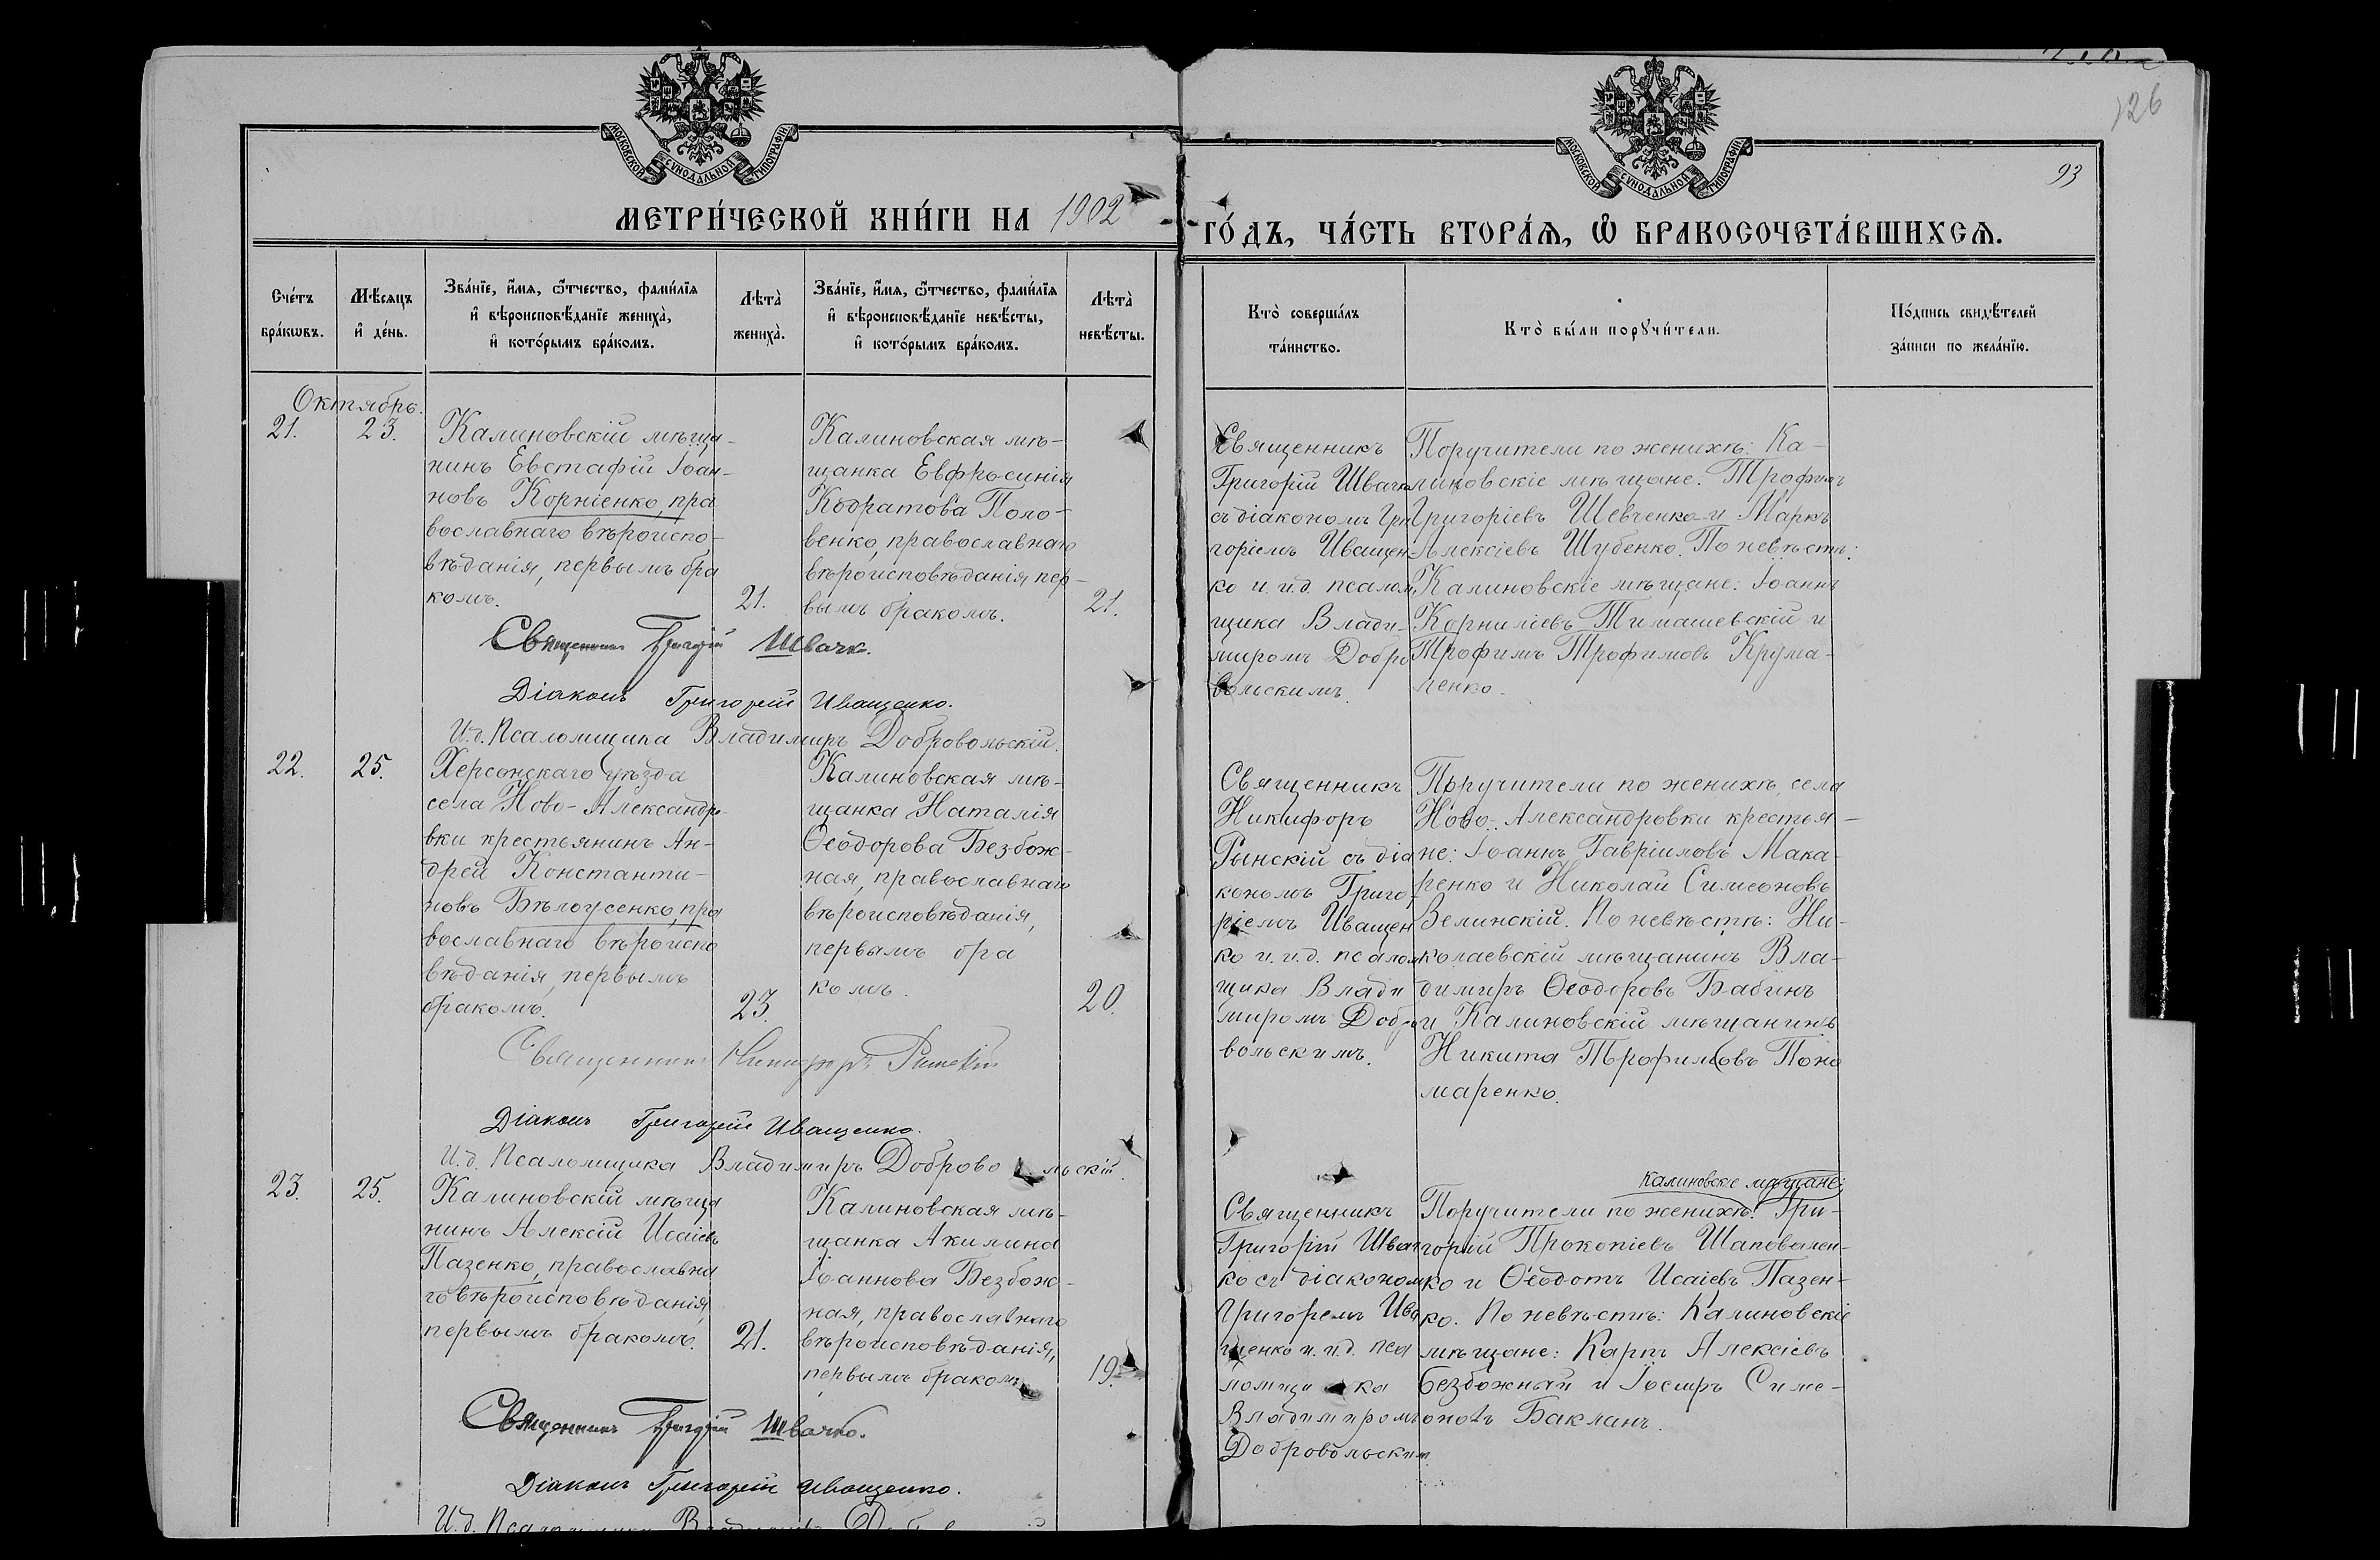 126
93
МОСКОВСКОЙ СѴНОДАЛЬНОЙ ТИПОГРАФІИ
МОСКОВСКОЙ СѴНОДАЛЬНОЙ ТИПОГРАФІИ
МЕТРИ́ЧЕСКОЙ КНИ́ГИ НА 1902
ГО́ДЪ, ЧА́СТЬ ВТОРА́Ѧ, Ѡ҆ БРАКОСОЧЕТА́ВШИХСѦ.
Счетъ
бракѡвъ.
Мѣсяцъ
и день.
Званіе, имя, ѿчество, фамилія
и вѣроисповѣданіе жениха,
и которымъ бракомъ.
Лѣта
жениха.
Званіе, имя, ѿчество, фамилія
и вѣроисповѣданіе невѣсты,
и которымъ бракомъ.
Лѣта
невѣсты.
Кто совершалъ
таинство.
Кто были порꙋчители.
Подпись свидѣтелей
записи по желанію.
Октябрь.
21.
23.
Калиновскій мѣща-
нинъ Евстафій Іоан-
новъ Корніенко, пра
вославнаго вѣроиспо-
вѣданія, первымъ бра
комъ.
21.
Калиновская мѣ-
щанка Евфросинія
Кодратова Поло-
венко, православнаго
вѣроисповѣданія пер-
вымъ бракомъ.
21.
Священникъ
Григорій Швачко
съ діакономъ Гри
горіемъ Иващен-
ко и и.д. псалом,
щика Влади-
миромъ Добро
вольскимъ.
Поручители по женихѣ: Ка-
линовскіе мѣщане: Трофимъ
Григоріевъ Шевченко и Маркъ
Алексіевъ Шубенко. По невѣстѣ:
Калиновскіе мѣщане: Іоаннъ
Корниліевъ Тимашевскій и
Трофимъ Трофимовъ Крума-
ленко.
Священникъ Григорій Швачко.
Діаконъ Григорій Иващенко.
И.д. Псаломщика Владимиръ Добровольскій.
22.
25.
Херсонскаго уѣзда
села Ново-Александро-
вки крестьянинъ Ан-
дрей Константи-
новъ Бѣлоусенко, пра
вославнаго вѣроиспо
вѣданія, первымъ
бракомъ.
23.
Калиновская мѣ-
щанка Наталія
Ѳеодорова Безбож-
ная, православнаго
вѣроисповѣданія,
первымъ бра
комъ.
20.
Священникъ
Никифоръ
Рынскій съ діа
кономъ Григо,
ріемъ Иващен
ко и и.д. псалом
щика Влади
миромъ Добро
вольскимъ.
Поручители по женихѣ, села
Ново-Александровки крестья-
не: Іоаннъ Гавріиловъ Мака-
ренко и Николай Симеоновъ
Велинскій. По невѣстѣ: Ни-
колаевскій мѣщанинъ Вла-
димиръ Ѳеодоровъ Бабинъ
и Калиновскій мѣщанинъ
Никита Трофимовъ Поно
маренко.
Священникъ Никифоръ Рынскій
Діаконъ Григорій Иващенко.
И.д. Псаломщика Владимиръ Добровольскій.
23.
25.
Калиновскій мѣща
нинъ Алексій Исаіевъ
Пазенко, православна
го вѣроисповѣданія,
первымъ бракомъ.
21.
Калиновская мѣ-
щанка Акилина
Іоаннова Безбож-
ная, православнаго
вѣроисповѣданія,
первымъ бракомъ
19.
Священникъ
Григорій Швач
ко съ діакономъ
Григоремъ Ива
щенко и и.д. пса
ломщика
Владимиромъ
Добровольскимъ
Калиновскіе мѣщане:
Поручители по женихѣ: Гри-
горій Прокопіевъ Шаповален-
ко и Ѳеодотъ Исаіевъ Пазен-
ко. По невѣстѣ: Калиновскіе
мѣщане: Карпъ Алексіевъ
Безбожный и Іосифъ Симе-
оновъ Бакланъ.
Священникъ Григорій Швачко.
Діаконъ Григорій Иващенко.
И.д. Псаломщика